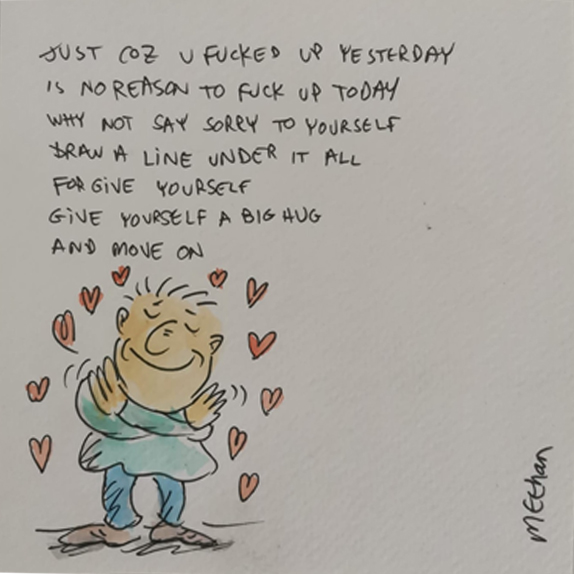 JUST COZ U FUCKED UP YESTERDAY
IS NO REASON TO FUCK UP TODAY
WHY NOT SAY SORRY TO YOURSELF
DRAW A LINE UNDER IT ALL
FORGIVE YOURSELF
GIVE YOURSELF A BIG HUG
AND MOVE ON
MEEHAN